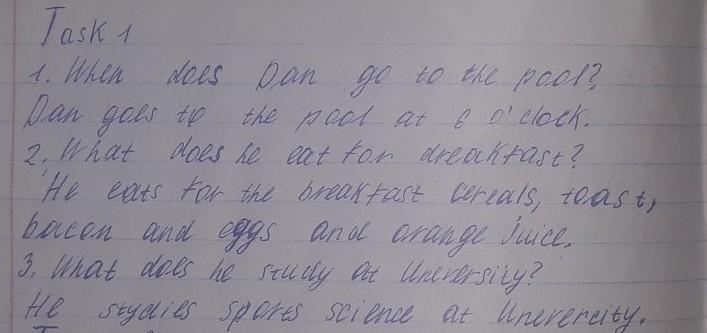 Task 1
1. When does Dan go to the pool?
Dan goes to the pool at 6 o'clock.
2. What does he eat for dreakfast?
He eats for the breakfast cereals, toast,
bacon and eggs and orange juice.
3. What does he study at Uneversity?
He studies sports science at Unevercity.